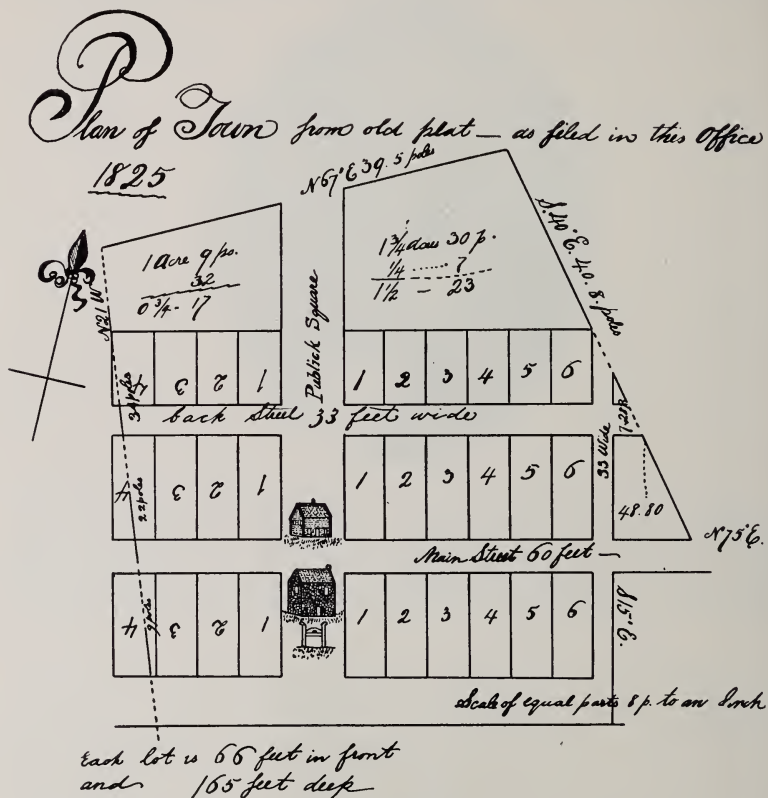 Plan of Town from old plat — as filed in this Office
1825
N67°E 39.5 poles
S.40°E. 40.8.poles
N21W
1 Acre 9 po.
32
0 3/4 - 17
1 3/4 do 30 p.
1/4 ...... 7
1 1/2 - 23
Publick Square
4 3 2 1
1 2 3 4 5 6
34 poles
back Street 33 feet wide
33 Wide
4 3 2 1
1 2 3 4 5 6
22 poles
48.80
Main Street 60 feet —
N75°E.
4 3 2 1
1 2 3 4 5 6
9 poles
S15°E.
Scale of equal parts 8 p. to an Inch
Each lot is 66 feet in front
and 165 feet deep